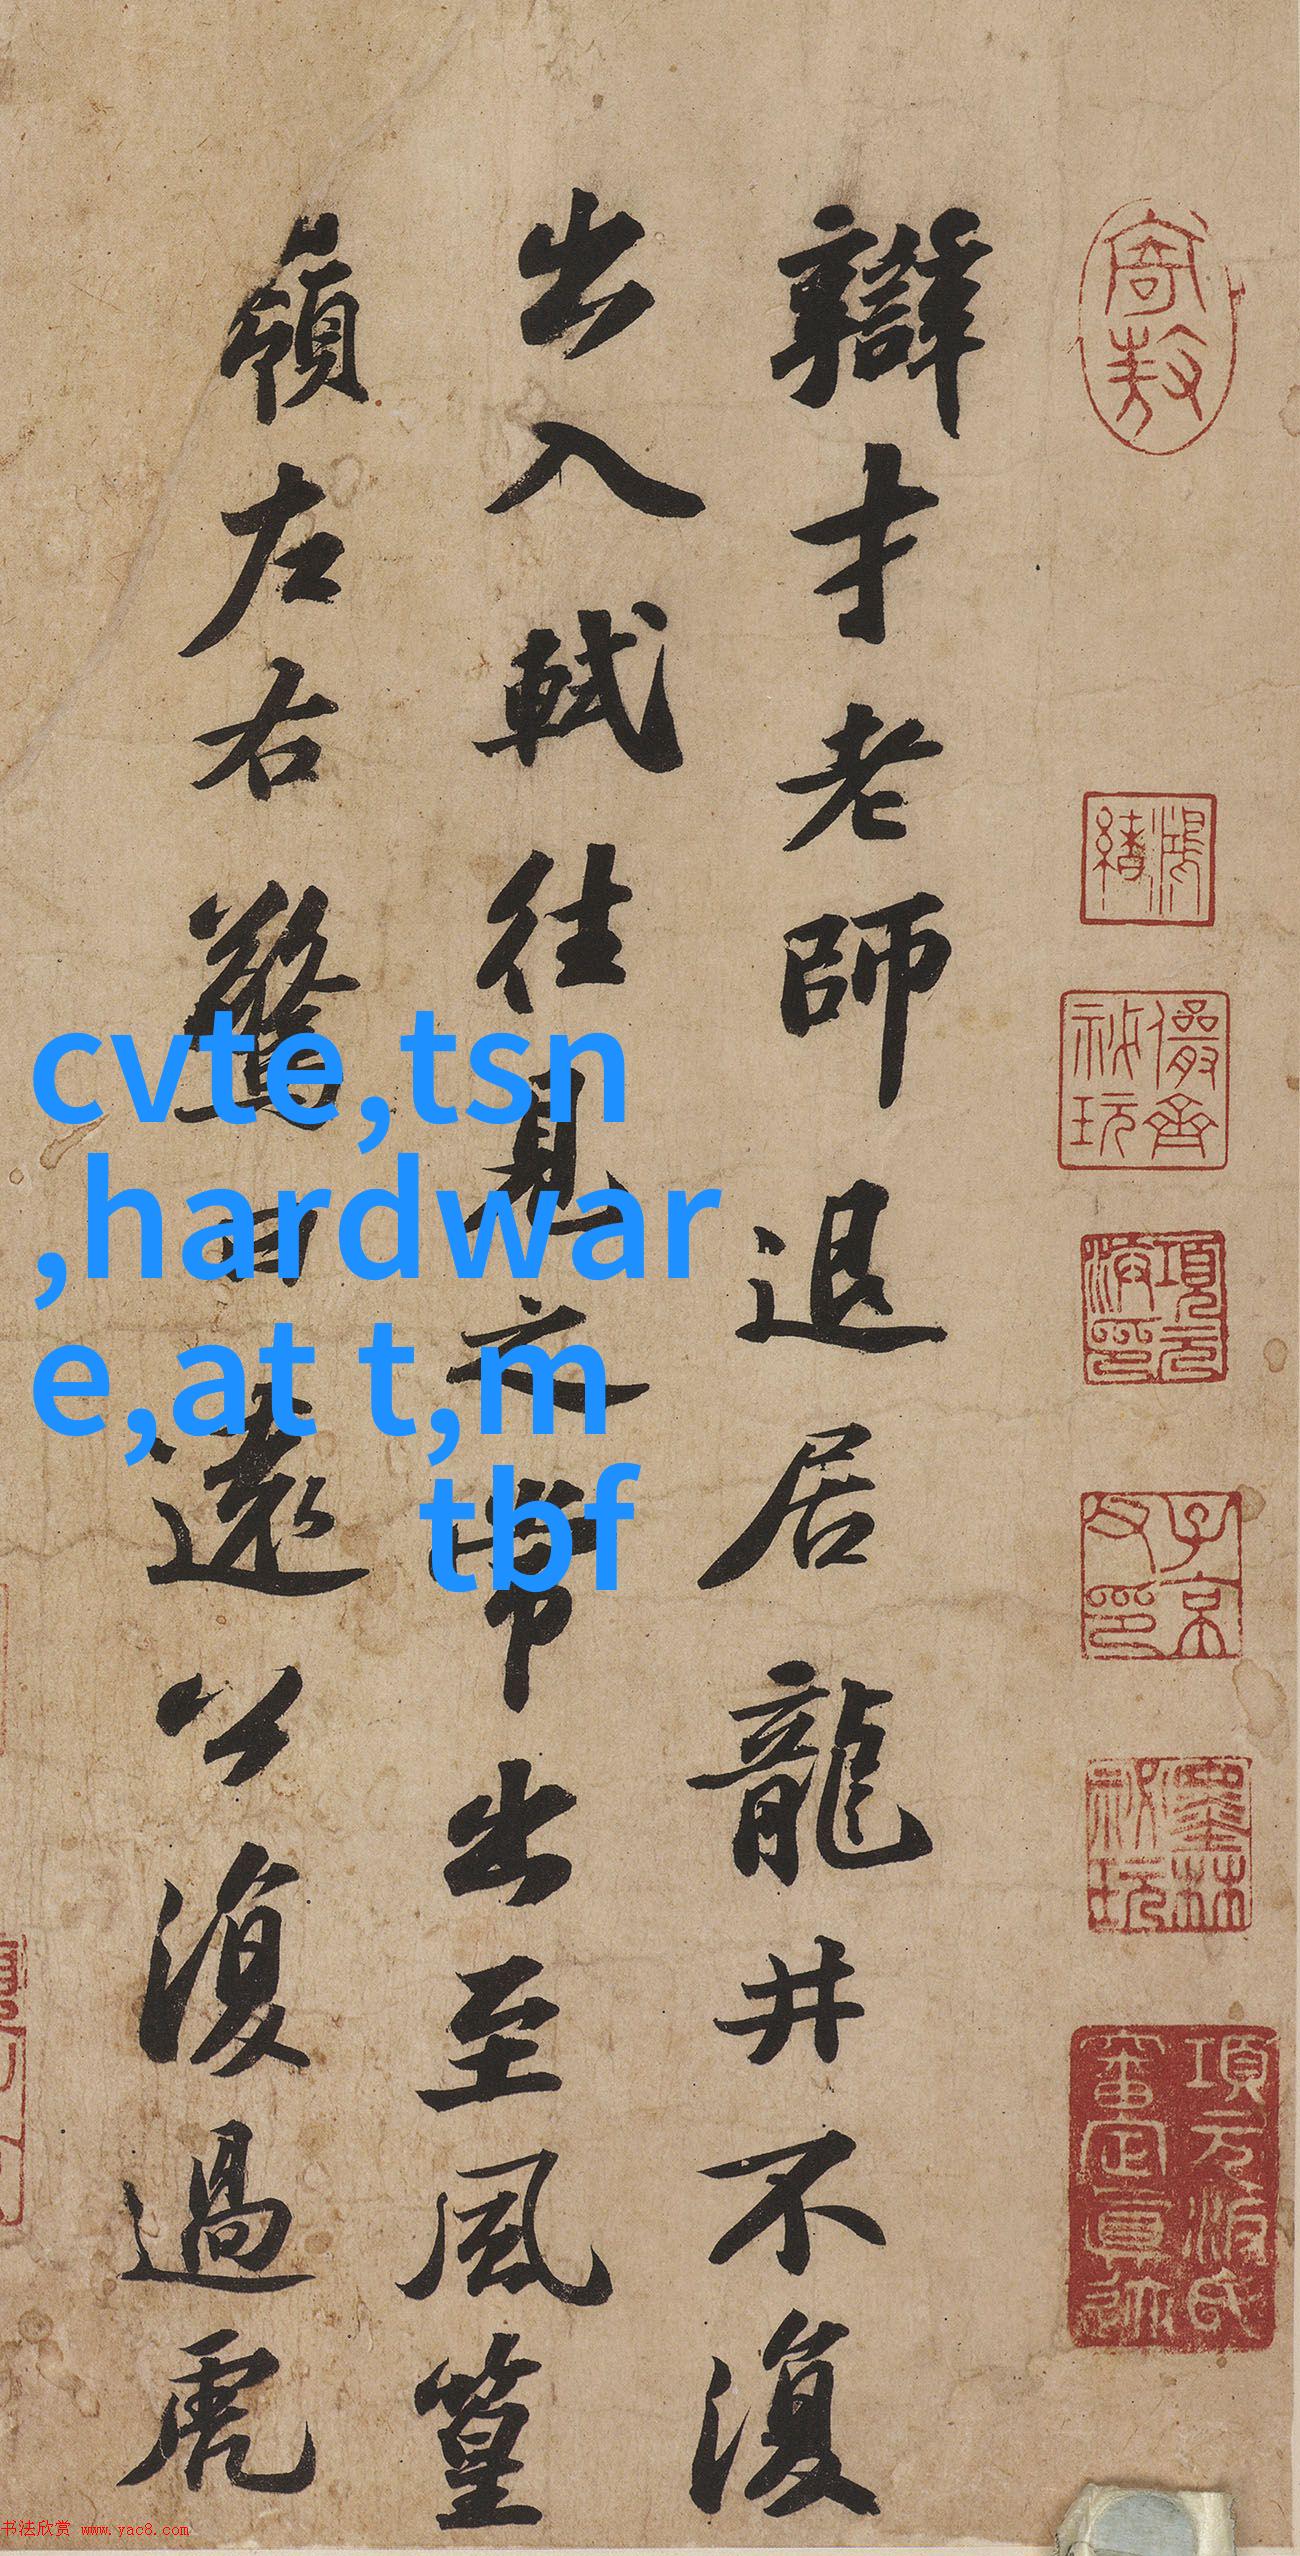 辯才老師退居龍井不復
出入軾往見之常出至風篁
嶺左右驚曰遠公復過虎
cvte,tsn
,hardwar
e,at t,m
tbf
項元汴印
子京父印
墨林祕玩
項元汴氏審定真跡
书法欣赏 www.yac8.com